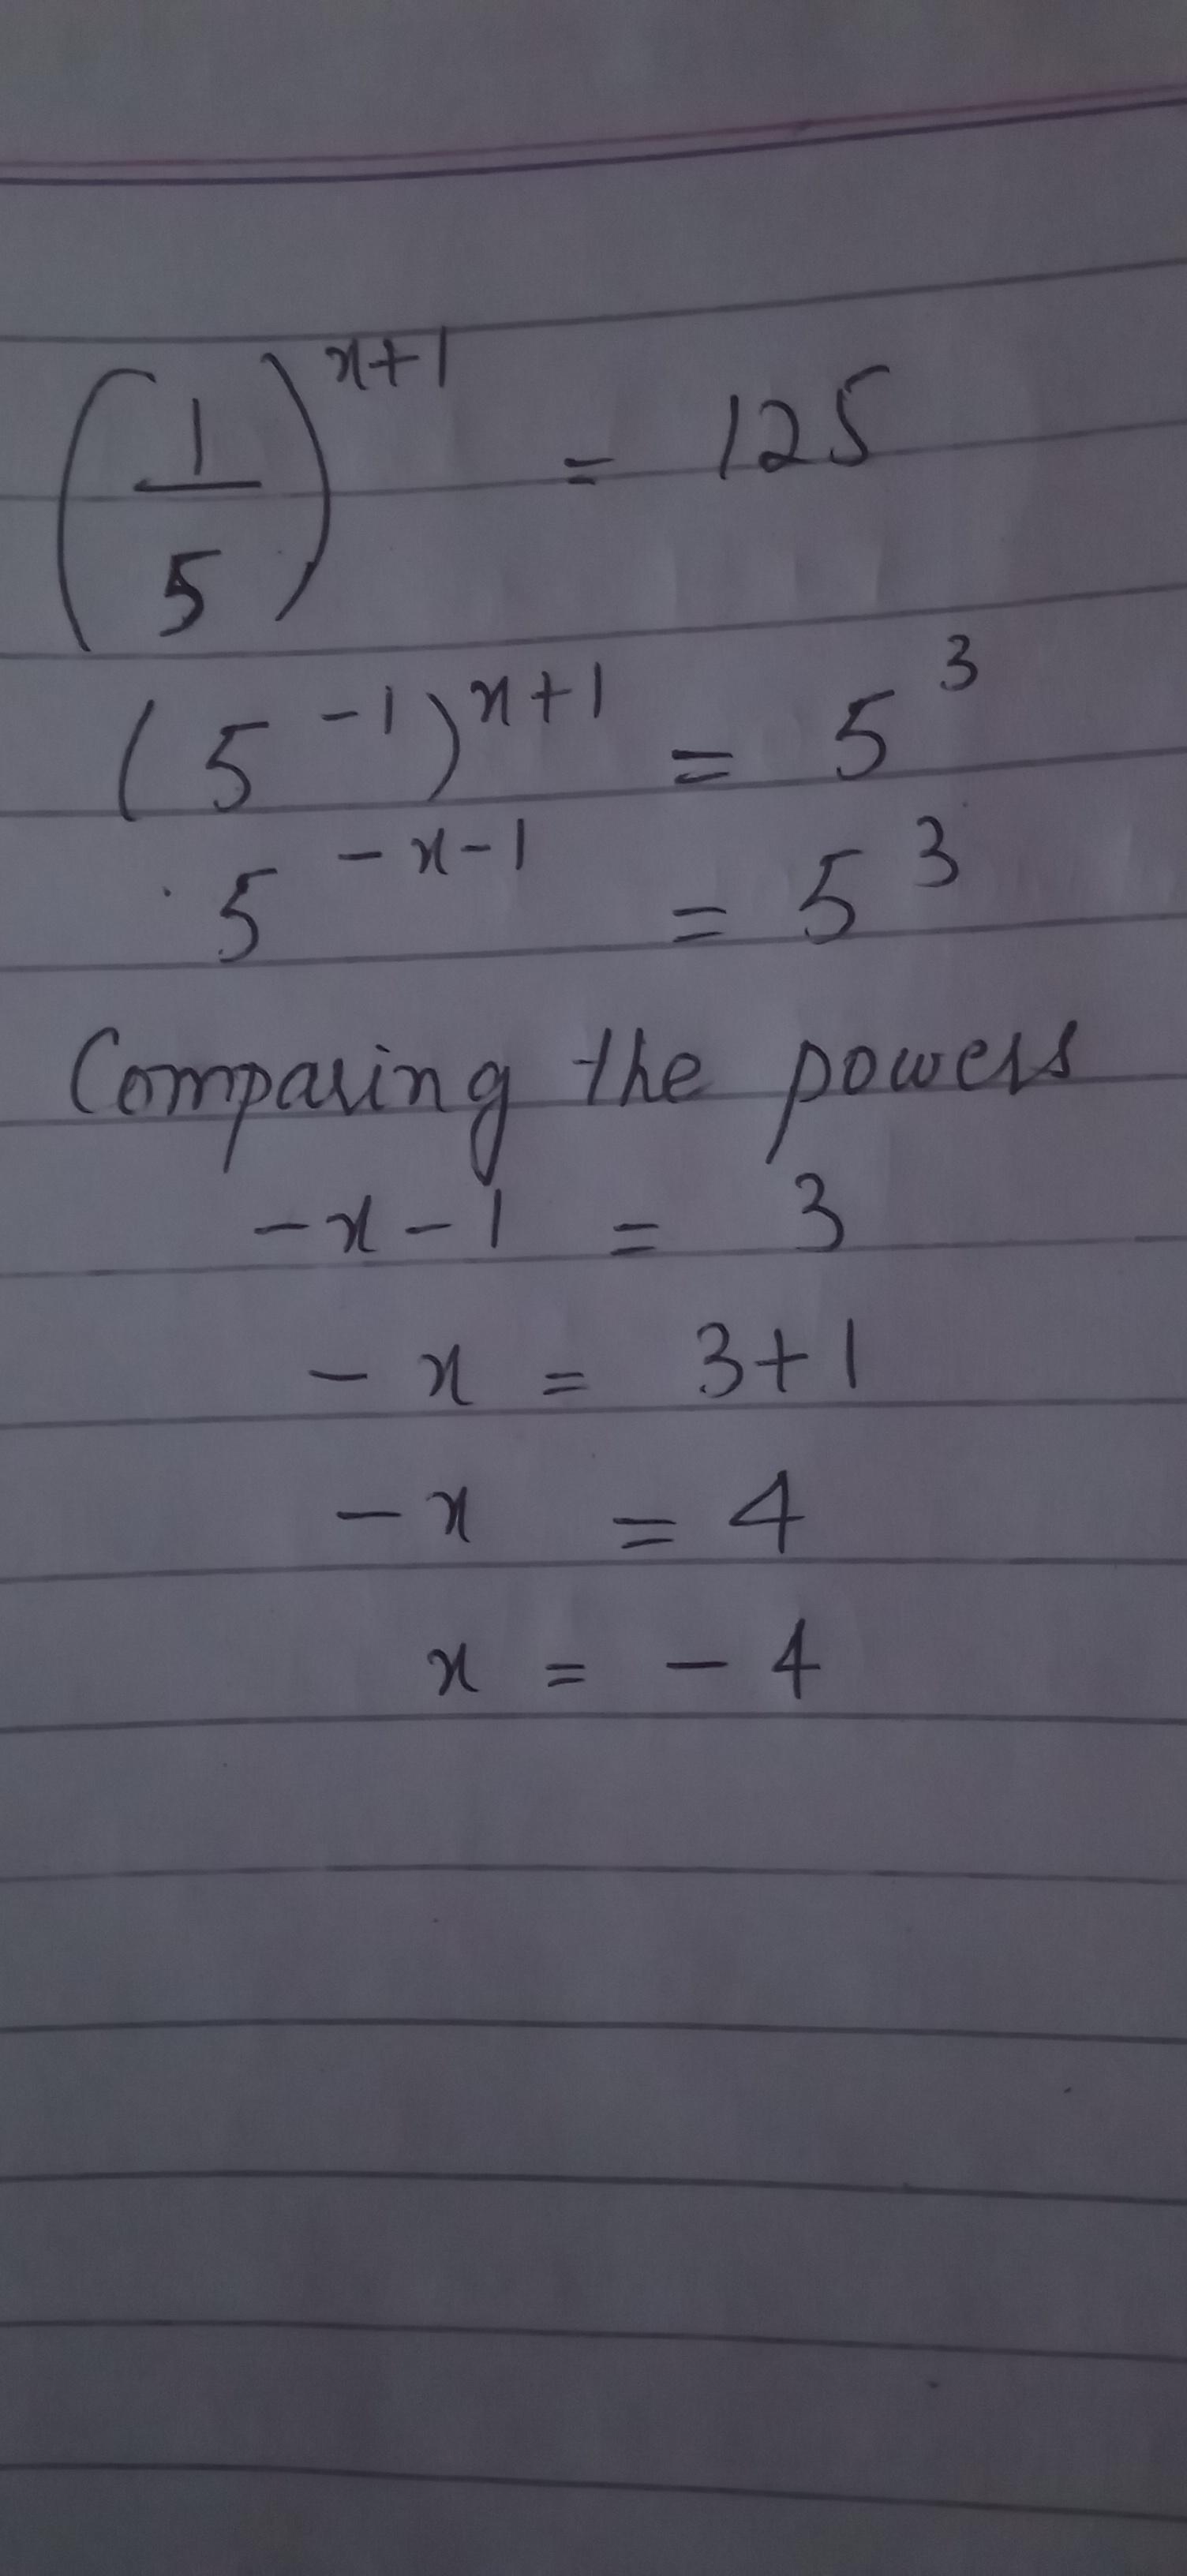 (1/5)^(x+1) = 125
(5^-1)^(x+1) = 5^3
5^(-x-1) = 5^3
Comparing the powers
-x-1 = 3
-x = 3+1
-x = 4
x = -4